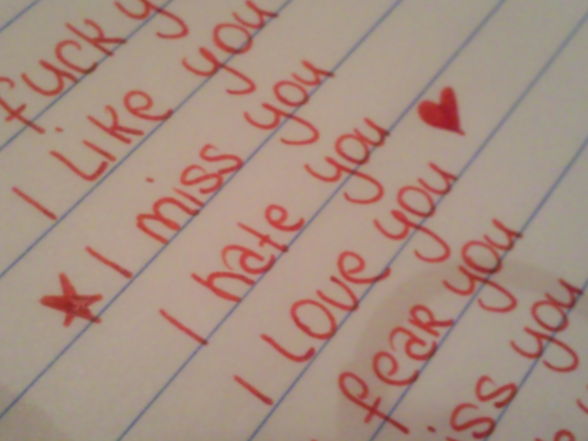 fuck y
I Like you
I miss you
I hate you
I Love you
fear you
iss you